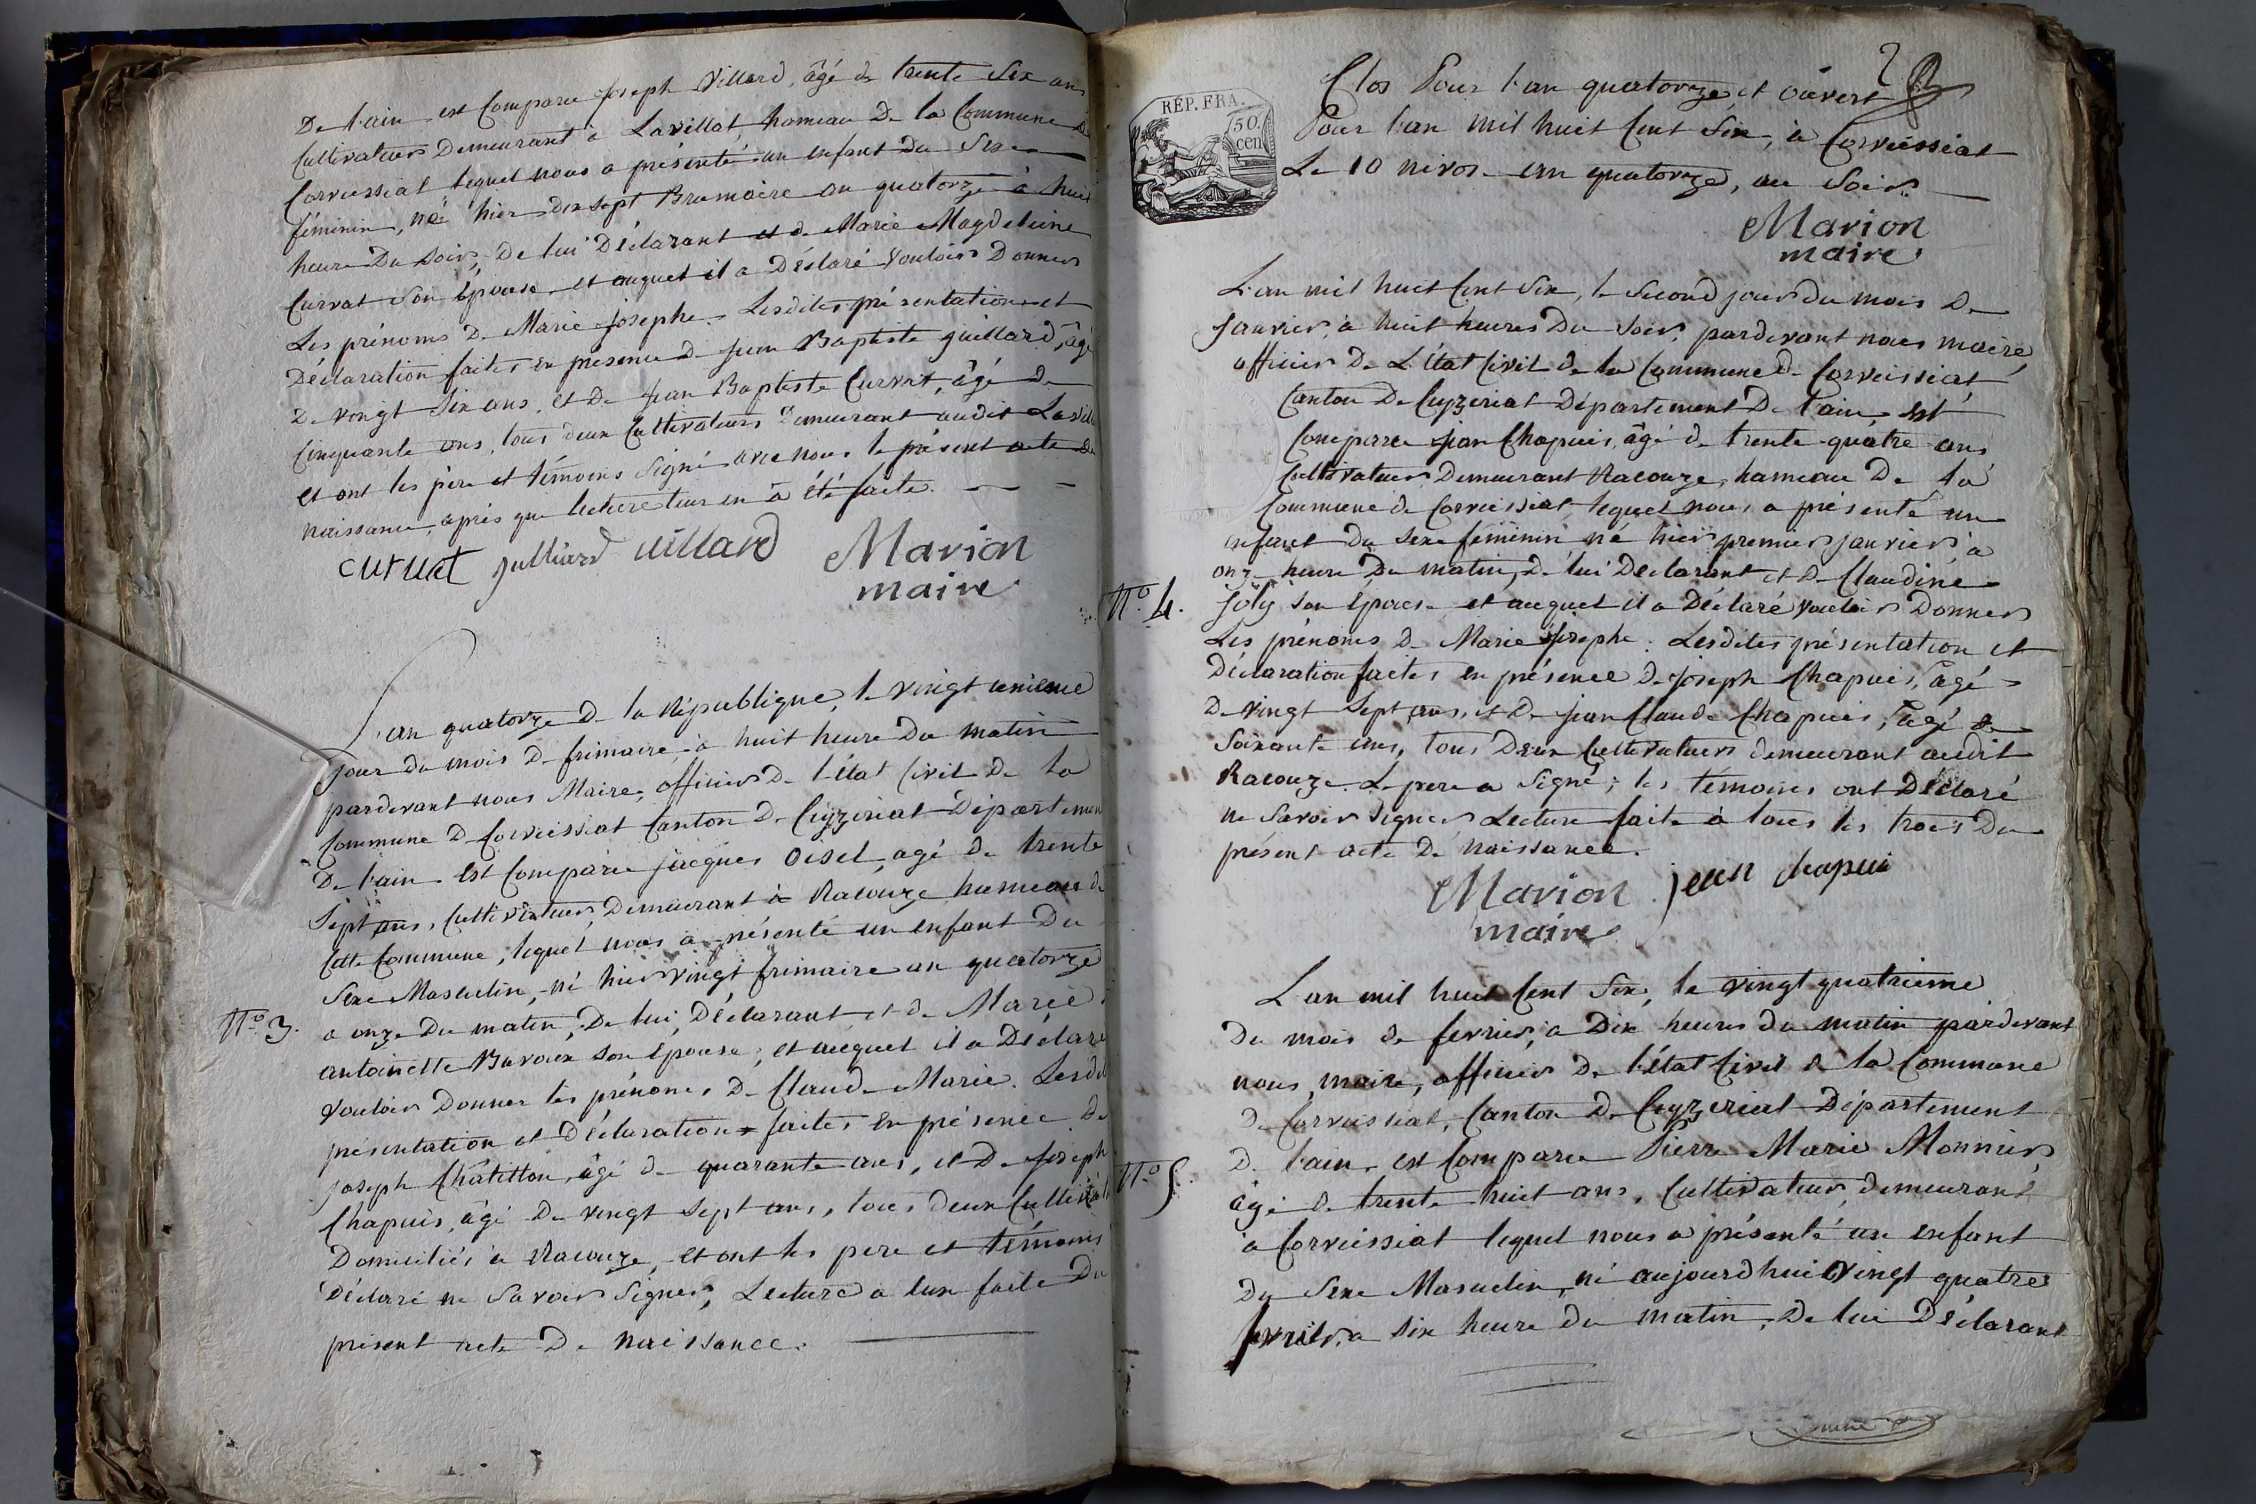 De l'ain est Comparu Joseph Villard, âgé de trente Six ans
Cultivateur Demeurant à Lavillat, hameau De la Commune de
Corveissiat lequel nous a présenté un enfant du Sexe
féminin, né hier dix sept Brumaire an quatorze à huit
heure Du Soir, De lui Déclarant et de Marie Magdeleine
Curvat Son Epouse, et auquel il a Déclaré Vouloir Donner
Les prénoms De Marie Josephe. Lesdites présentation et
Déclaration faites en presence De Jean Baptiste Juillard, âgé
De vingt Six ans, et De Jean Baptiste Curvat, âgé De
Cinquante ans, tous deux Cultivateurs Demeurant audit Lavillat
et ont les père et témoins Signé avec nous le présent acte De
naissance, après que lecture leur en a été faite.
curvat Julliard villard Marion
maire
L'an quatorze De la République, le vingt unieme
Jour du mois De frimaire, à huit heure Du matin
pardevant nous Maire, officier De l'état Civil De la
Commune De Corveissiat Canton De Ceyzeriat Département
De l'ain est Comparu Jacques Oisel, agé de trente
Sept ans, Cultivateur, Demeurant à Racouze hameau de
Cette Commune, lequel nous a présenté un enfant Du
Sexe Masculin, né hier vingt frimaire an quatorze
N.o 3. a onze Du matin, De lui Déclarant et de Marie
antoinette Bavoux Son Epouse, et auquel il a Déclaré
Vouloir Donner les prénoms De Claude Marie. Lesdites
présentation et Déclaration faites En présence De
Joseph Châtillon, âgé de quarante ans, et De Joseph
Chapuis, âgé De vingt Sept ans, tous deux Cultivat
Domiciliés à Racouze, et ont les pere et témoins
Déclaré ne Savoir Signer, Lecture a leur faite Du
présent acte De naissance.
2
Clos Pour l'an quatorze et ouvert
Pour l'an mil huit Cent Six, à Corveissiat
Le 10 nivos an quatorze, au Soir
RÉP. FRA.
50.
cen
Marion
maire
L'an mil huit Cent Six, le Second jour du mois De
Janvier, à huit heures Du Soir, pardevant nous maire,
officier De L'état Civil de la Commune de Corveissiat
Canton De Ceyzeriat Département De l'ain est
Comparu Jean Chapuis, âgé de trente quatre ans
Cultivateur Demeurant Racouze, hameau De la
Commune de Corveissiat lequel nous a présenté un
enfant Du Sexe féminin né hier premier janvier à
onze heure Du matin, de lui Déclarant et De Claudine
N.o 4. Joly Son Epouse et auquel il a Déclaré vouloir Donner
Les prénoms De Marie Josephe. Lesdites présentation et
Déclaration faites en présence De Joseph Chapuis, âgé
De vingt Sept ans, et De Jean Claude Chapuis, âgé de
Soixante ans, tous Deux Cultivateurs demeurant audit
Racouze. Le pere a Signé; les témoins ont Déclaré
ne Savoir Signer Lecture faite à tous les trois Du
présent acte De naissance.
Marion jean chapuis
maire
L'an mil huit Cent Six, le vingt quatrieme
Du mois de fevrier, à Dix heures du matin pardevant
nous, maire, officier De l'état Civil de la Commune
De Corveissiat, Canton De Ceyzeriat Département
De l'ain, est Comparu Pierre Marie Monnier
N.o 5. âgé de trente huit ans, Cultivateur, demeurant
à Corveissiat lequel nous a présenté un enfant
Du Sexe Masculin, né aujourd'hui Vingt quatre
fevrier, a six heure du matin, De lui Déclarant